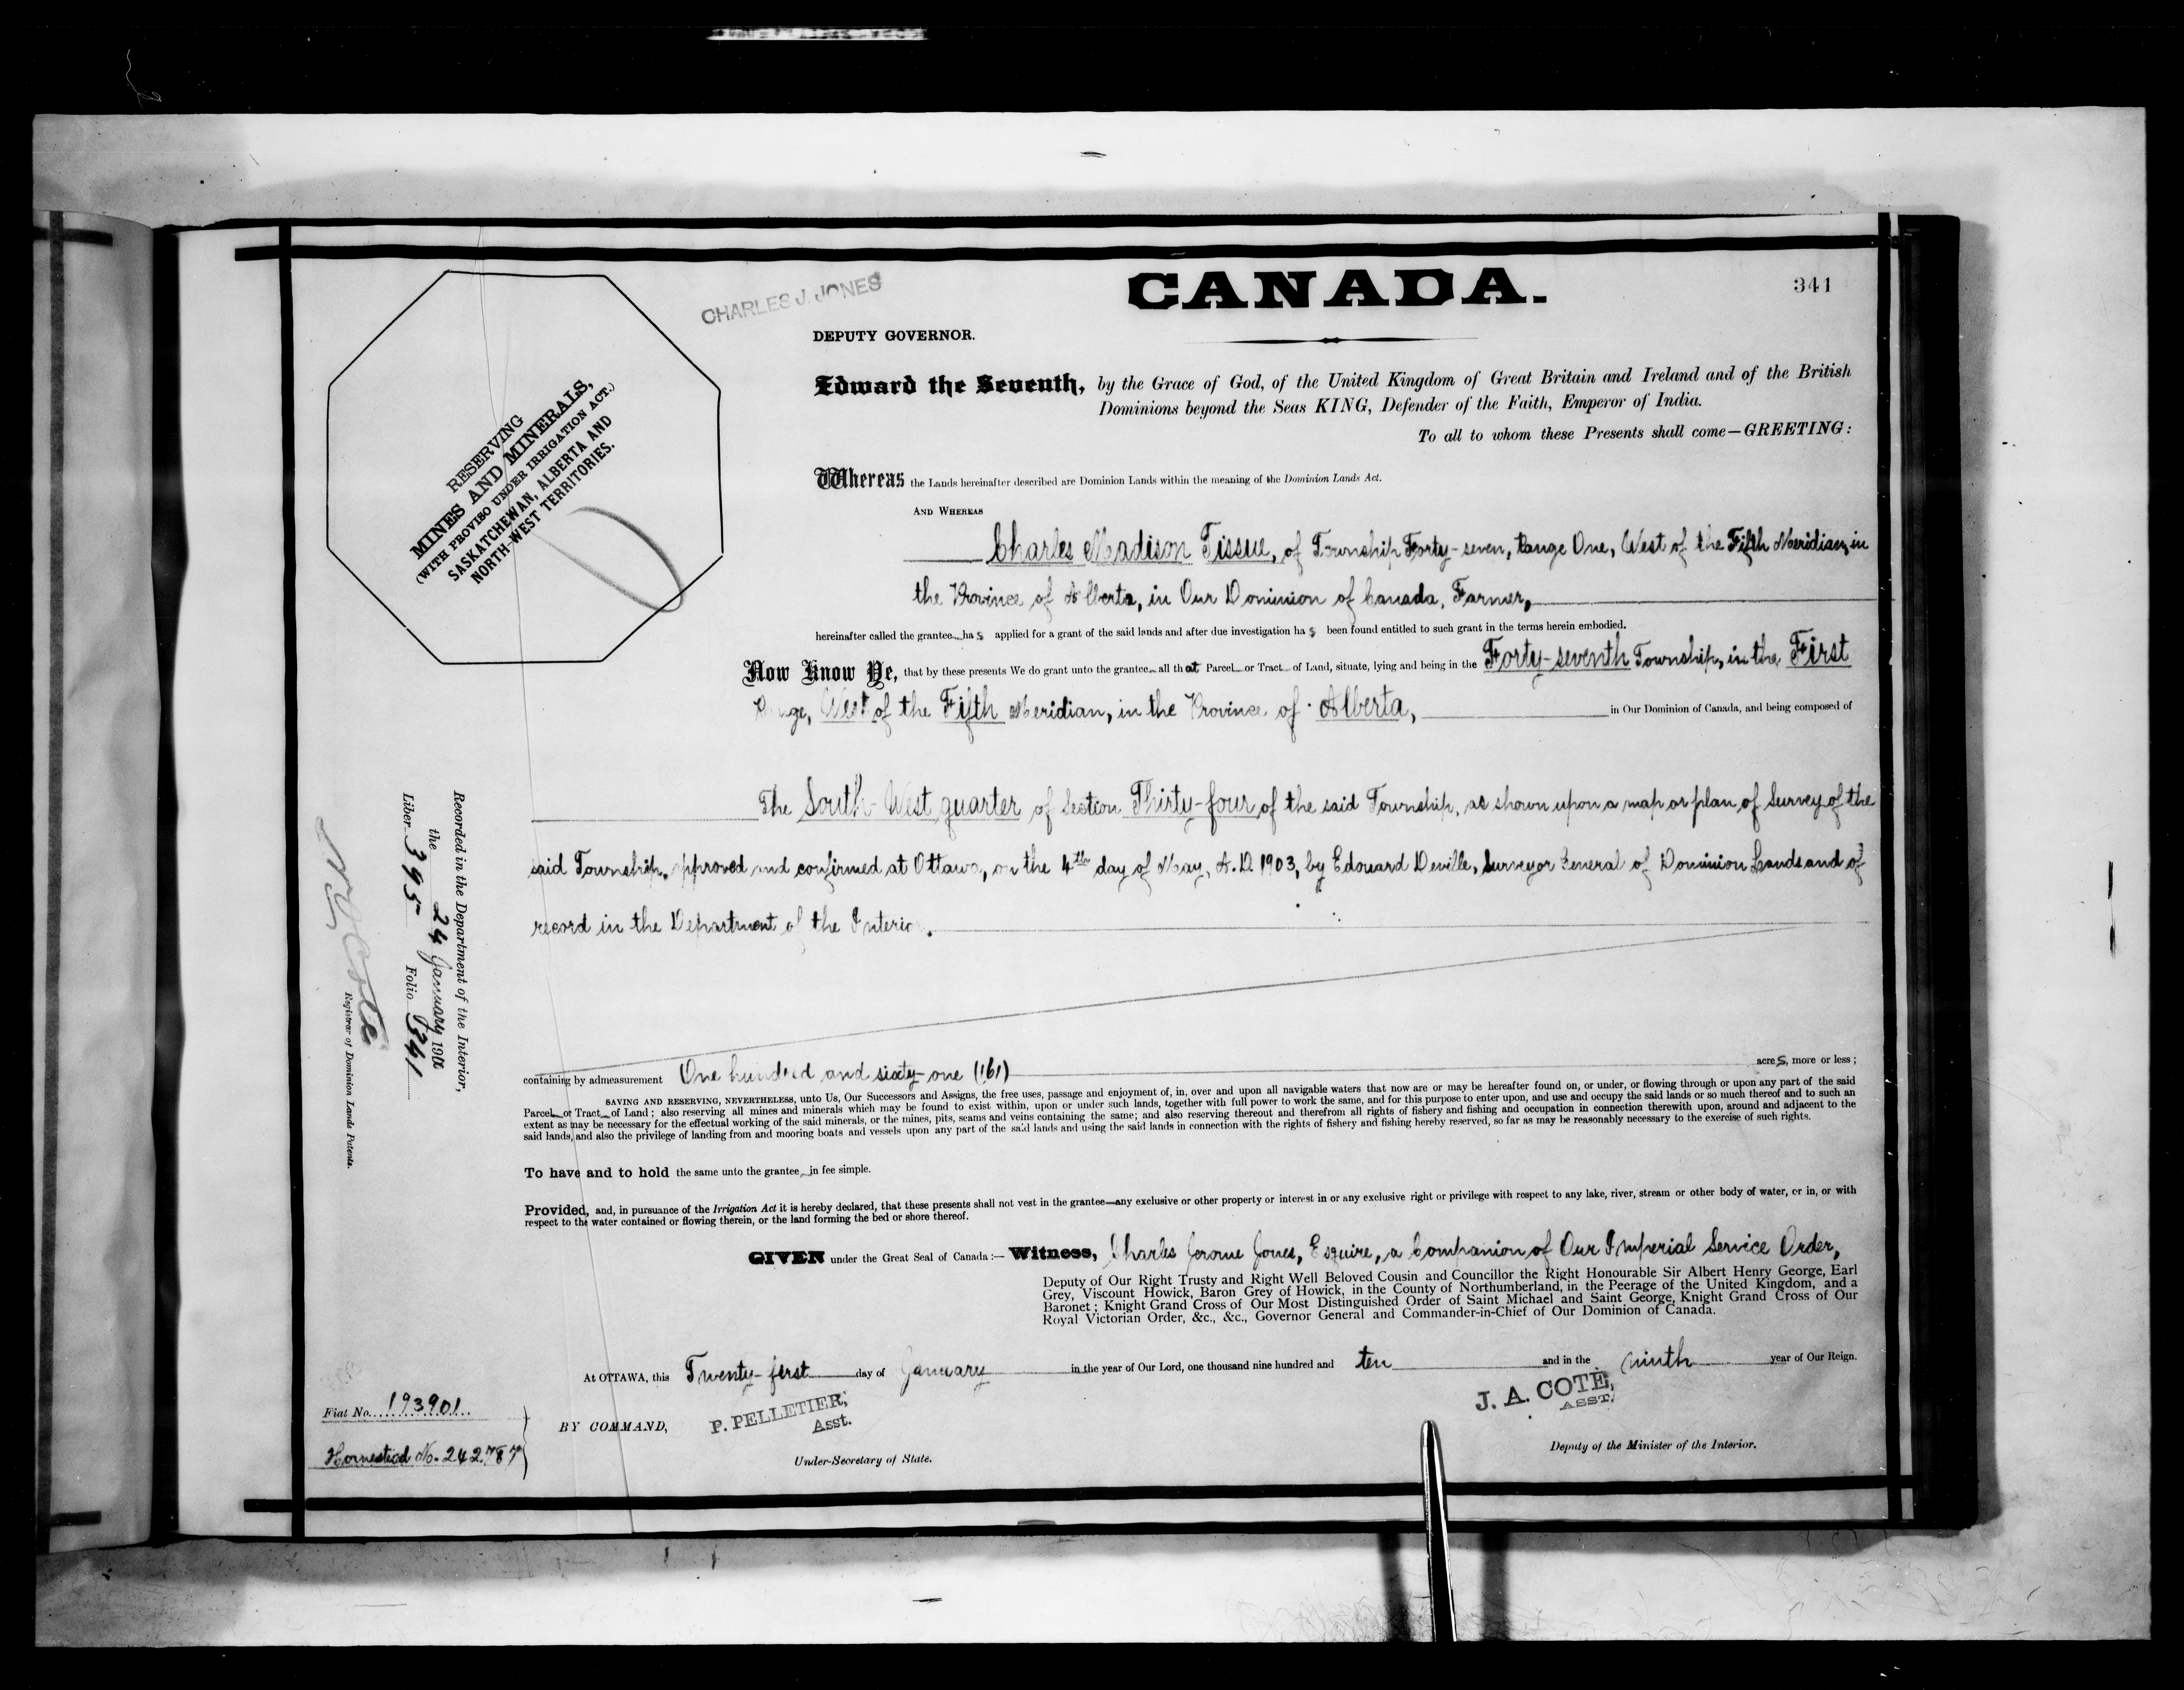 CHARLES J. JONES
CANADA.
341
DEPUTY GOVERNOR.
Edward the Seventh, by the Grace of God, of the United Kingdom of Great Britain and Ireland and of the British
Dominions beyond the Seas KING, Defender of the Faith, Emperor of India.
To all to whom these Presents shall come—GREETING:
RESERVING
MINES AND MINERALS,
(WITH PROVISO UNDER IRRIGATION ACT.)
SASKATCHEWAN, ALBERTA AND
NORTH-WEST TERRITORIES.
Whereas the Lands hereinafter described are Dominion Lands within the meaning of the Dominion Lands Act.
AND WHEREAS
Charles Madison Tissue, of Township Forty-seven, Range One, West of the Fifth Meridian, in
the Province of Alberta, in Our Dominion of Canada, Farmer,
hereinafter called the grantee has applied for a grant of the said lands and after due investigation has been found entitled to such grant in the terms herein embodied.
Now Know Ye, that by these presents We do grant unto the grantee all that Parcel or Tract of Land, situate, lying and being in the Forty-seventh Township, in the First
Range, West of the Fifth Meridian, in the Province of Alberta, in Our Dominion of Canada, and being composed of
The South West quarter of Section Thirty-four of the said Township, as shown upon a map or plan of Survey of the
said Township, approved and confirmed at Ottawa, on the 4th day of May, A.D. 1903, by Edouard Deville, Surveyor General of Dominion Lands and of
record in the Department of the Interior.
Recorded in the Department of the Interior,
the 24 January 190
Liber 395 Folio 341
N O Coté
Registrar of Dominion Lands Patents.
containing by admeasurement One hundred and sixty-one (161) acres, more or less;
SAVING AND RESERVING, NEVERTHELESS, unto Us, Our Successors and Assigns, the free uses, passage and enjoyment of, in, over and upon all navigable waters that now are or may be hereafter found on, or under, or flowing through or upon any part of the said
Parcel or Tract of Land; also reserving all mines and minerals which may be found to exist within, upon or under such lands, together with full power to work the same, and for this purpose to enter upon, and use and occupy the said lands or so much thereof and to such an
extent as may be necessary for the effectual working of the said minerals, or the mines, pits, seams and veins containing the same; and also reserving thereout and therefrom all rights of fishery and fishing and occupation in connection therewith upon, around and adjacent to the
said lands, and also the privilege of landing from and mooring boats and vessels upon any part of the said lands and using the said lands in connection with the rights of fishery and fishing hereby reserved, so far as may be reasonably necessary to the exercise of such rights.
To have and to hold the same unto the grantee in fee simple.
Provided, and, in pursuance of the Irrigation Act it is hereby declared, that these presents shall not vest in the grantee—any exclusive or other property or interest in or any exclusive right or privilege with respect to any lake, river, stream or other body of water, or in, or with
respect to the water contained or flowing therein, or the land forming the bed or shore thereof.
GIVEN under the Great Seal of Canada:— Witness, Charles Jerome Jones, Esquire, a Companion of Our Imperial Service Order,
Deputy of Our Right Trusty and Right Well Beloved Cousin and Councillor the Right Honourable Sir Albert Henry George, Earl
Grey, Viscount Howick, Baron Grey of Howick, in the County of Northumberland, in the Peerage of the United Kingdom, and a
Baronet; Knight Grand Cross of Our Most Distinguished Order of Saint Michael and Saint George, Knight Grand Cross of Our
Royal Victorian Order, &c., &c., Governor General and Commander-in-Chief of Our Dominion of Canada.
At OTTAWA, this Twenty-first day of January in the year of Our Lord, one thousand nine hundred and ten and in the ninth year of Our Reign.
Fiat No. 193901
Homestead No. 242787
BY COMMAND,
P. PELLETIER,
Asst.
Under-Secretary of State.
J. A. COTE,
ASST.
Deputy of the Minister of the Interior.